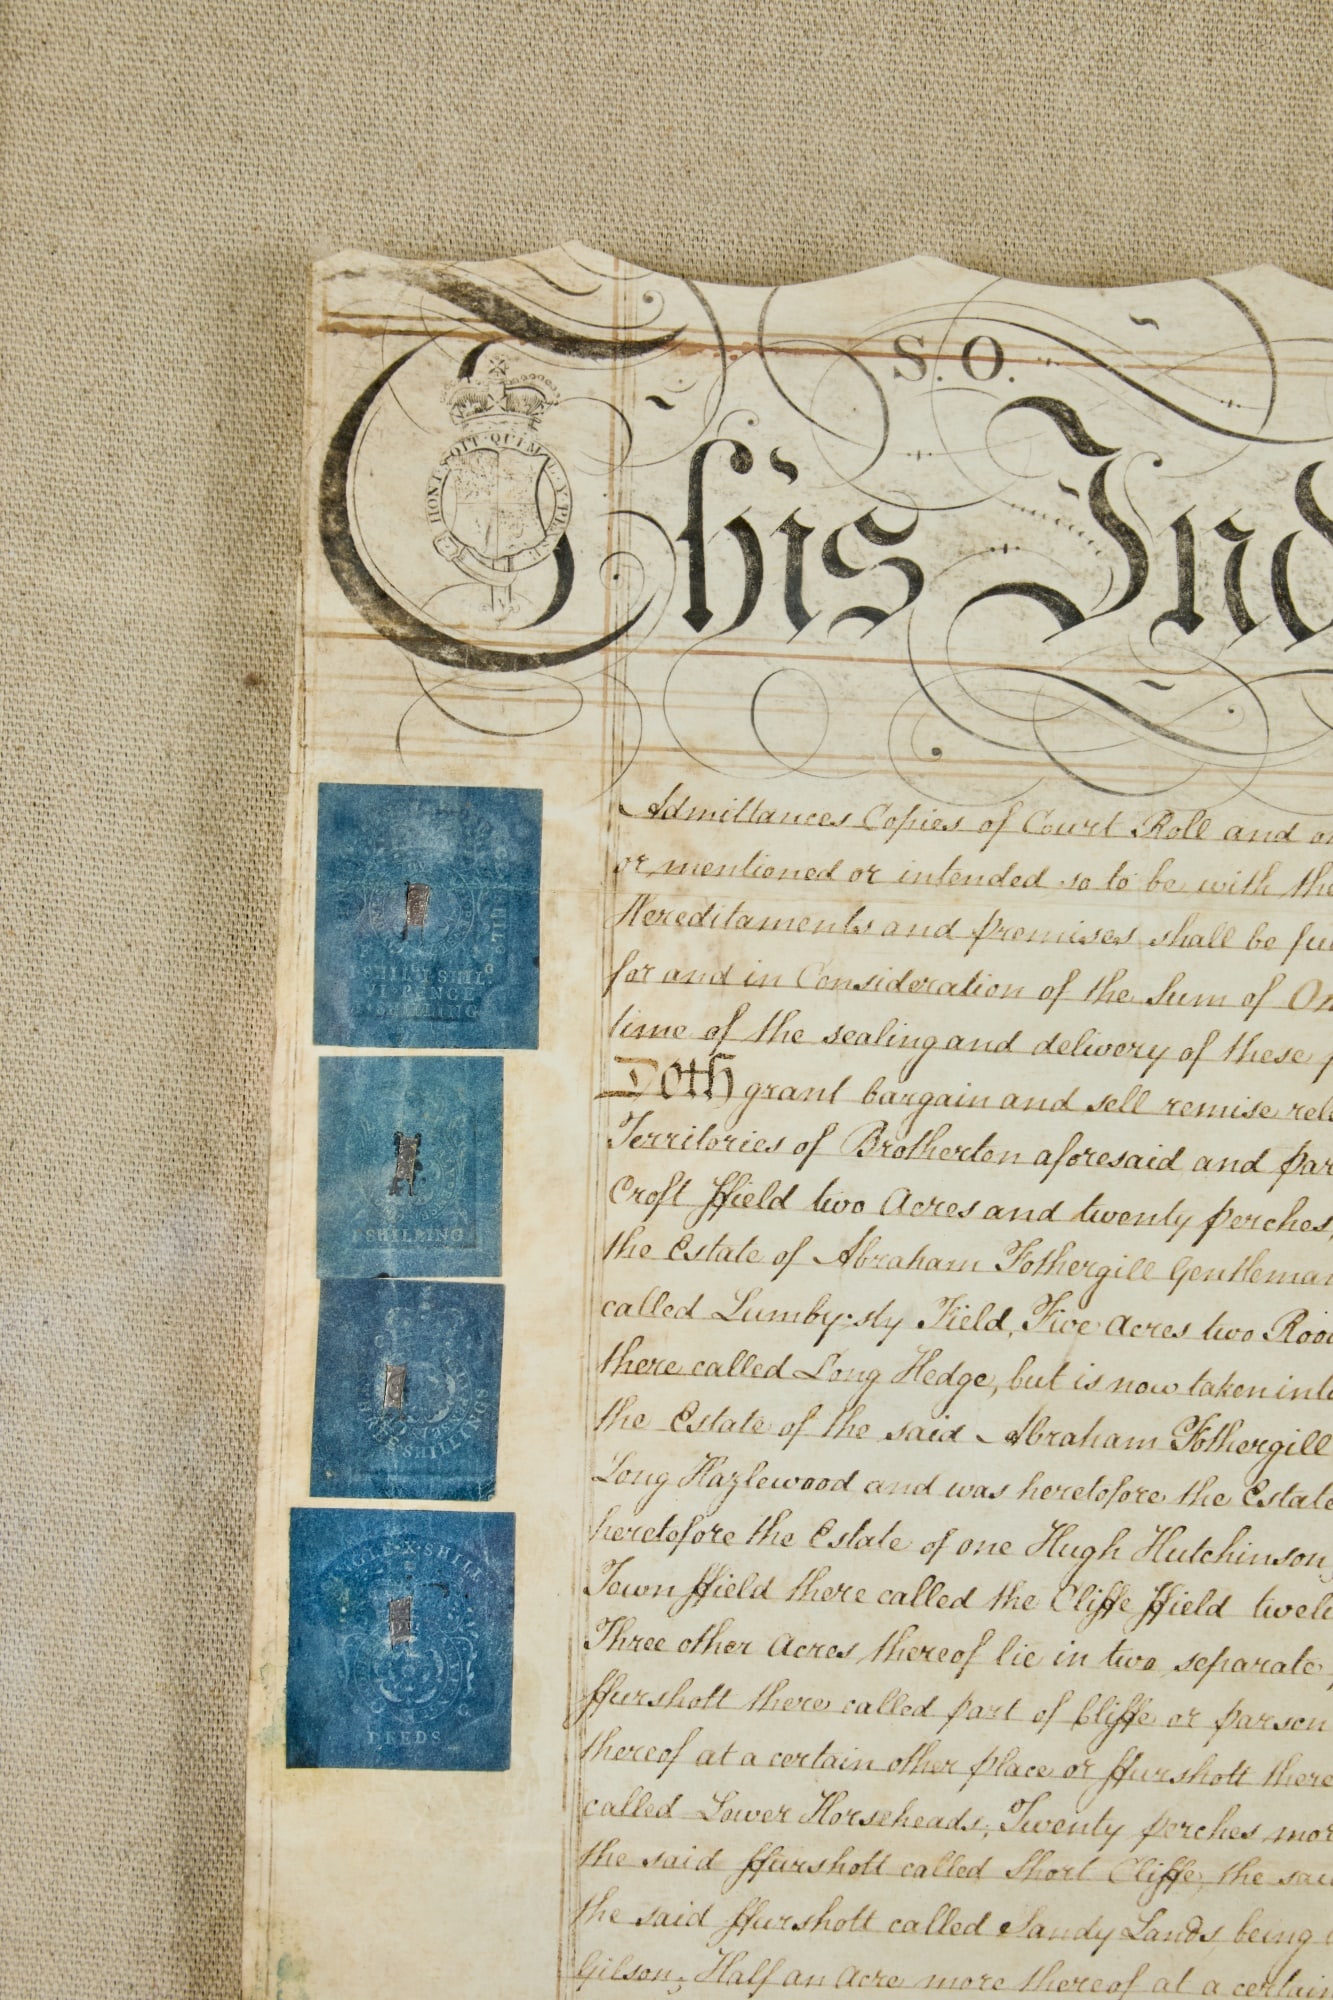 S. O.
HONI SOIT QUI MAL Y PENSE
This Ind
Admittances Copies of Court Roll and
or mentioned or intended so to be with the
Hereditaments and premises shall be fu
for and in Consideration of the Sum of On
time of the sealing and delivery of these p
Doth grant bargain and sell remise rele
Territories of Brotherton aforesaid and par
Croft ffield two Acres and twenty perches,
the Estate of Abraham Fothergill Gentleman
called Lumby sty Field, Five Acres two Rood
there called Long Hedge, but is now taken into
the Estate of the said Abraham Fothergill
Long Hazlewood and was heretofore the Estate
heretofore the Estate of one Hugh Hutchinson,
Town ffield there called the Cliffe ffield twele
Three other Acres thereof lie in two separate
ffurshott there called part of Cliffe or parson
thereof at a certain other place or ffurshott there
called Lower Horseheads, Twenty perches mor
the said ffurshott called Short Cliffe, the sai
the said ffurshott called Sandy Lands, being
Gilson; Half an Acre more thereof at a certain
VI·PENCE
I SHILLING
SHILLINGS
X·SHILL
DEEDS